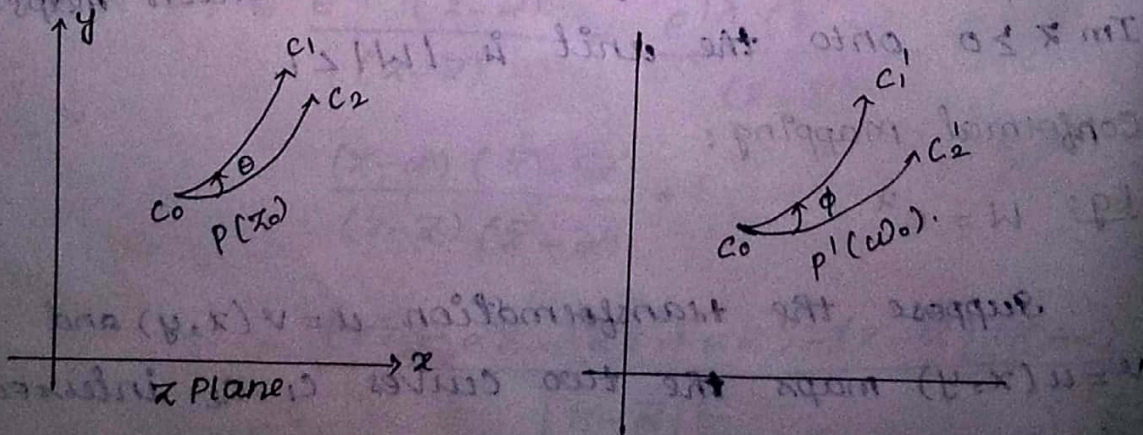 y
C1
C2
θ
C0
P(z0)
x
z plane
C1'
C2'
φ
C0
P'(ω0).